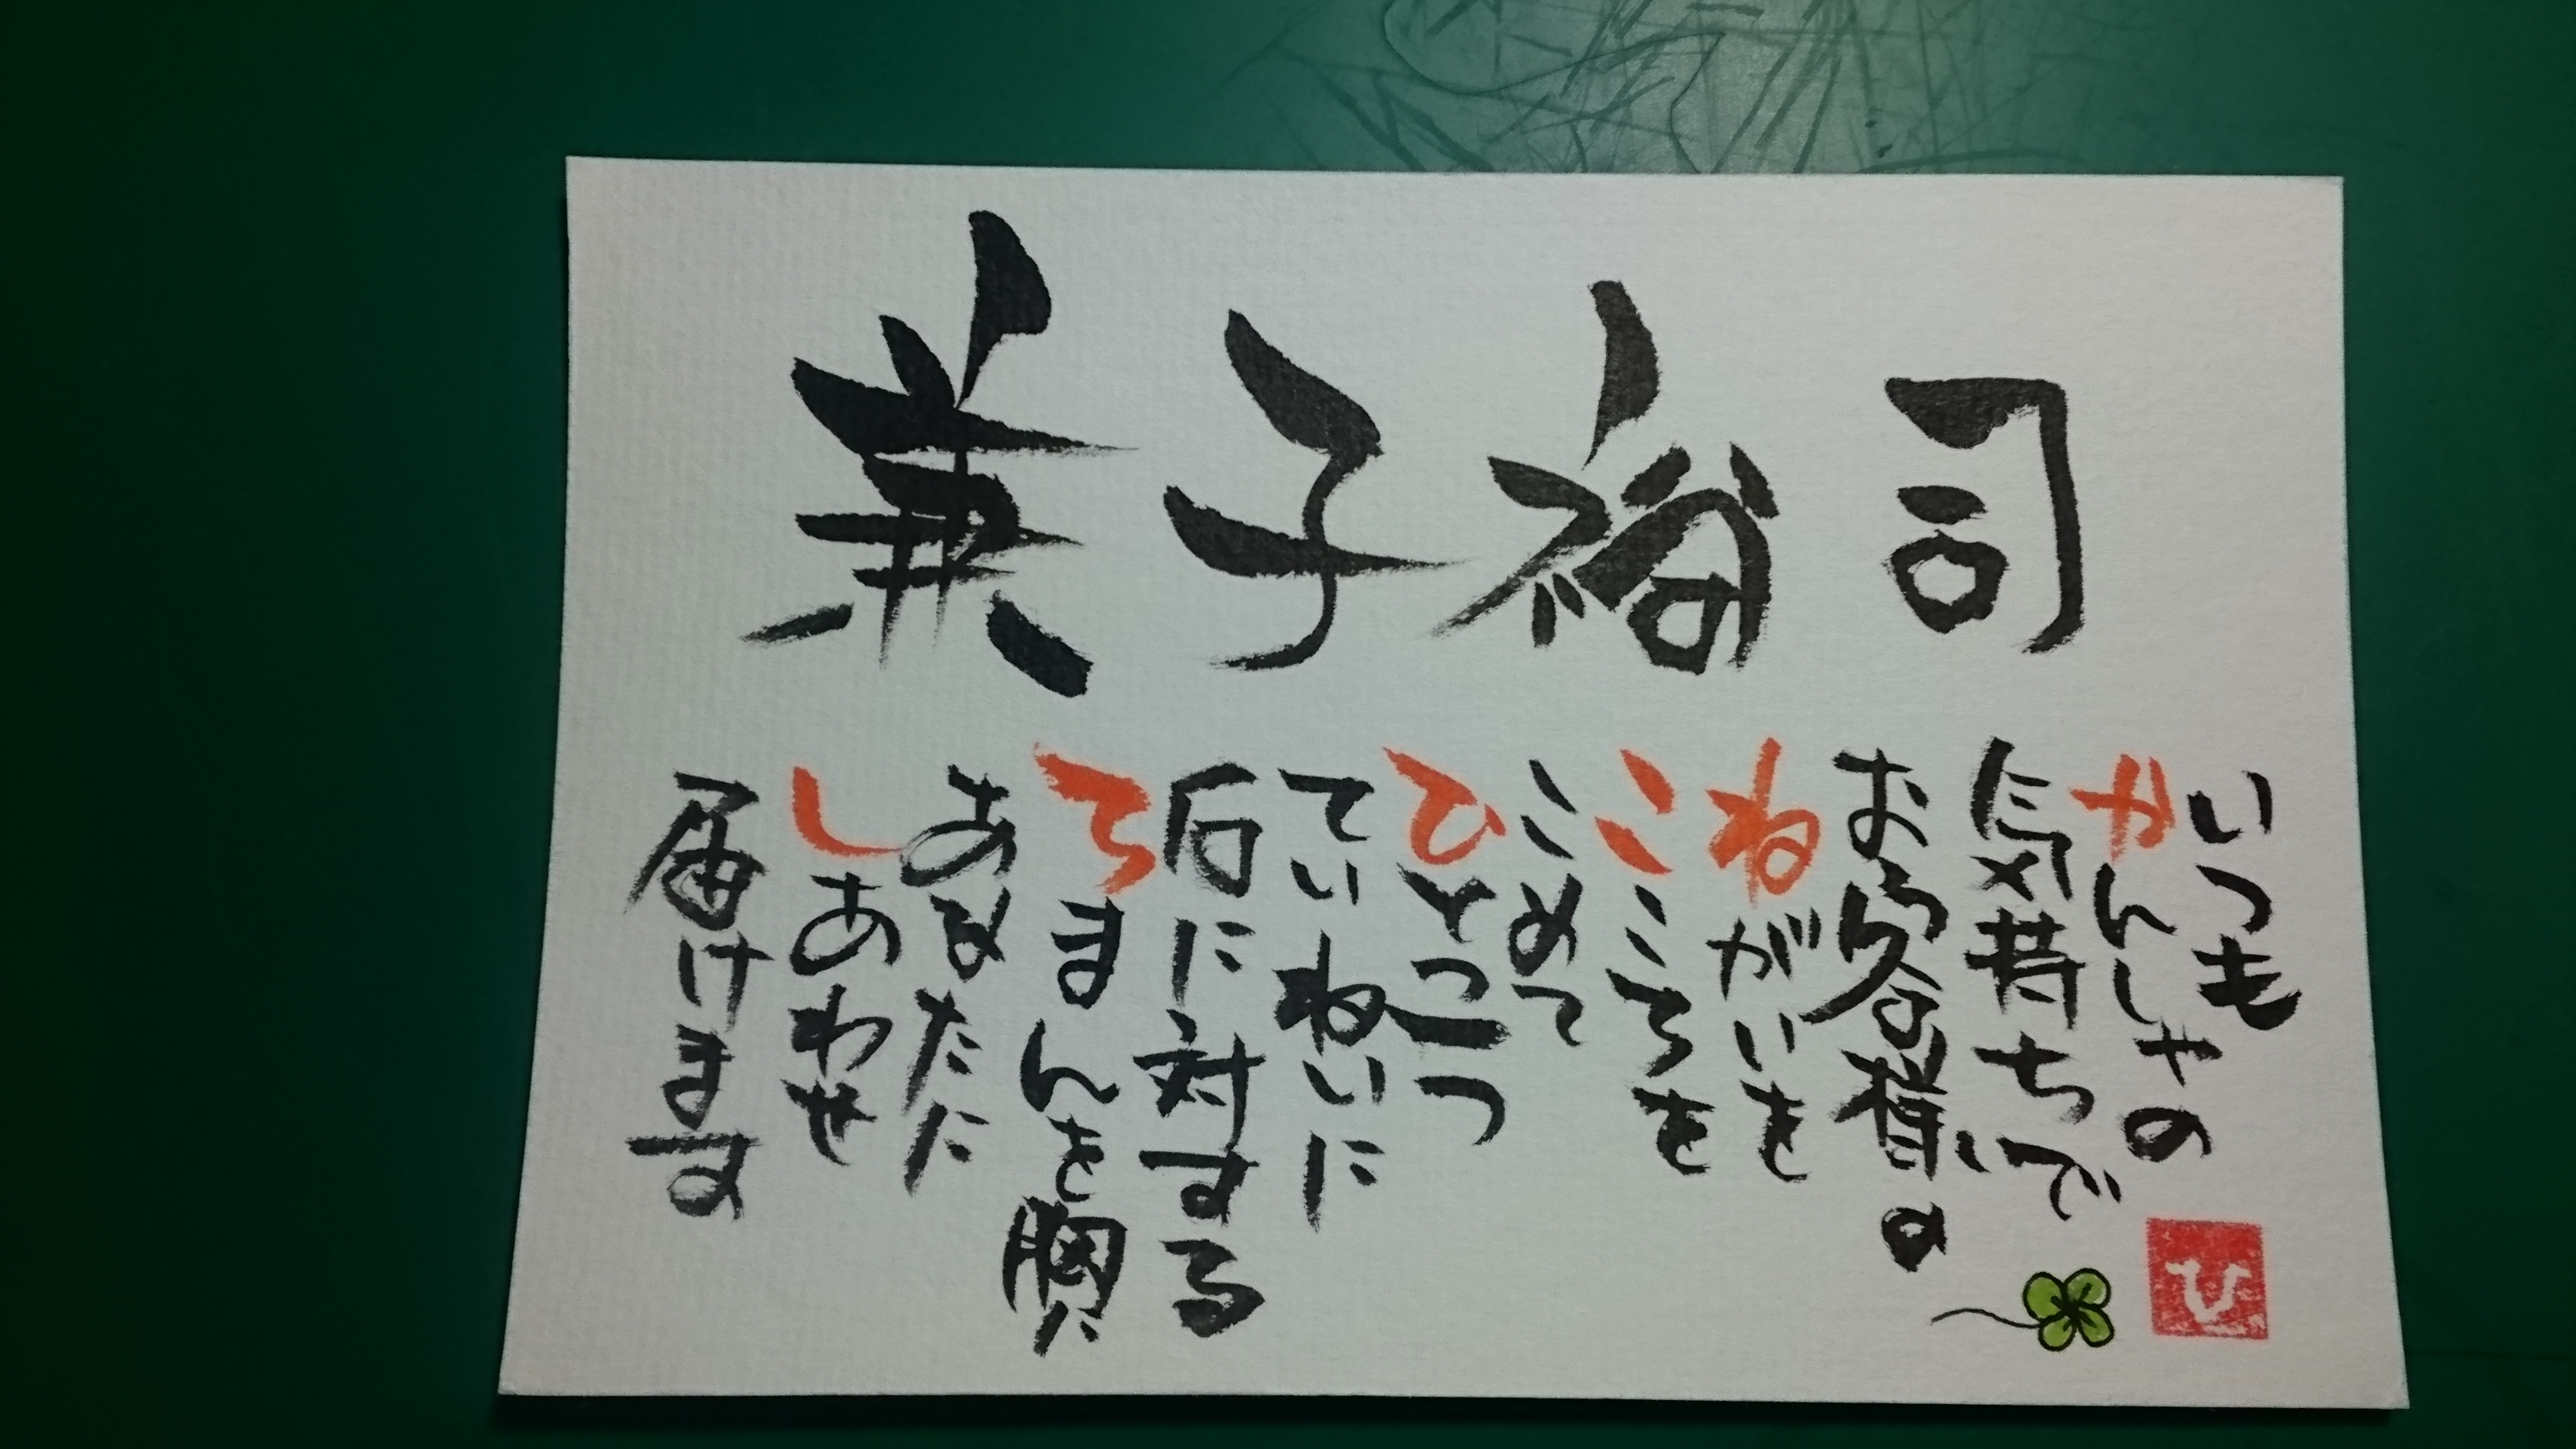 兼子裕司
いつも
かんしゃの
気持ちで
お客様の
ねがいを
こころを
こめて
ひとつ一つ
ていねいに
石に対する
ろまんを胸に
あなたに
しあわせ
届けます
ひ